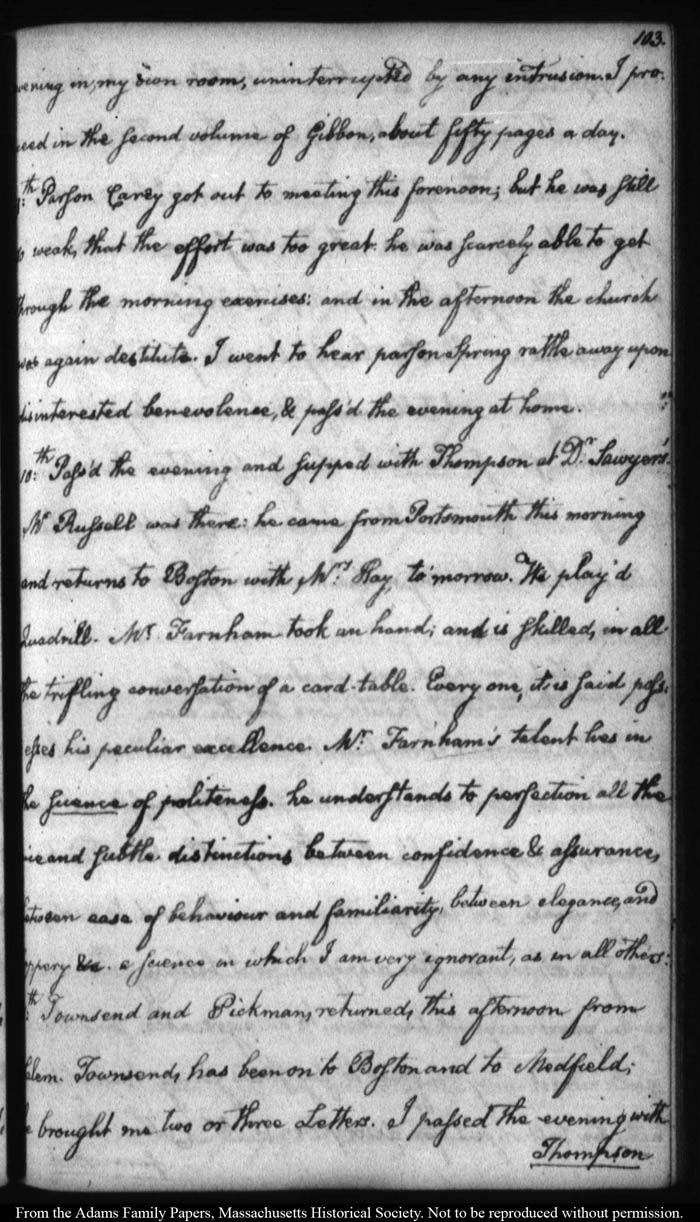 103.
evening in, my own room, uninterrupted by any intrusion. I pro-
ceed in the second volume of Gibbon, about fifty pages a day.
th Parson Carey got out to meeting this forenoon; but he was still
weak, that the effort was too great: he was scarcely able to get
through the morning exercises: and in the afternoon the church
was again destitute. I went to hear parson Spring rattle away upon
disinterested benevolence, & pass'd the evening at home.
10:th Pass'd the evening and supped with Thompson at Dr. Sawyer's.
Mr Russell was there: he came from Portsmouth this morning
and returns to Boston with Mrs Hay, to morrow. We play'd
Quadrill. Mr Farnham took an hand; and is skilled, in all
the trifling conversation of a card-table. Every one, it is said poss-
esses his peculiar excellence. Mr. Farnham's talent lies in
the science of politeness. he understands to perfection all the
nice and subtle distinctions between confidence & assurance,
between ease of behaviour and familiarity, between elegance, and
foppery &c. a science in which I am very ignorant, as in all others:
th Townsend and Pickman, returned, this afternoon from
Salem. Townsend, has been on to Boston and to Medfield;
he brought me two or three Letters. I passed the evening with
Thompson
From the Adams Family Papers, Massachusetts Historical Society. Not to be reproduced without permission.